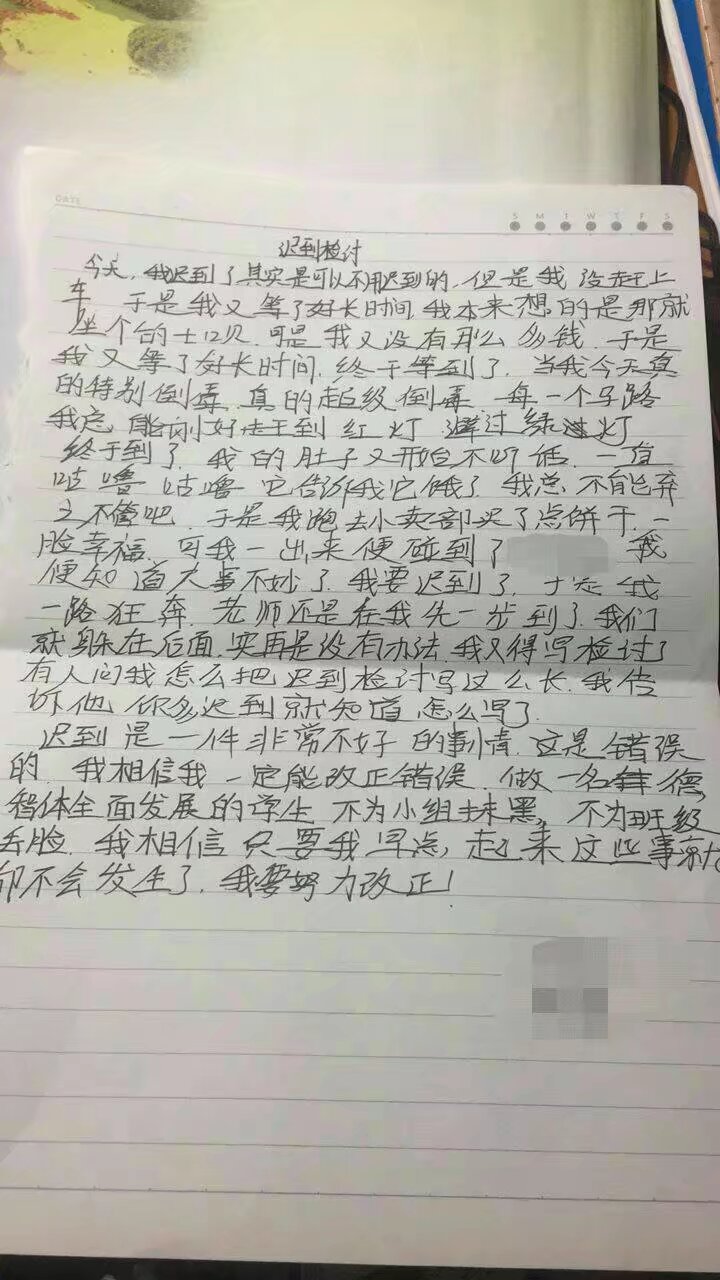 DATE
S M T W T F S
迟到检讨
今天,我迟到了其实是可以不用迟到的,但是我没赶上
车,于是我又等了好长时间,我本来想的是那就
坐个的士呗,可是我又没有那么多钱,于是
我又等了好长时间,终于等到了,当我今天真
的特别倒毒,真的超级倒毒,每一个马路
我总能刚好赶到红灯 过绿灯
终于到了,我的肚子又开始不听话,一直
咕噜咕噜它告诉我它饿了,我总不能弃
之不管吧,于是我跑去小卖部买了点饼干,一
脸幸福,可我一出来便碰到了 我
便知道大事不妙了,我要迟到了,于是我
一路狂奔,老师还是在我先一步到了,我们
就躲在后面,实再是没有办法,我又得写检讨了
有人问我怎么把迟到检讨写这么长,我告
诉他你多迟到就知道怎么写了.
迟到是一件非常不好的事情,这是错误
的,我相信我一定能改正错误,做一名德,
智体全面发展的学生 不为小组抹黑,不为班级
丢脸,我相信只要我早点,起来这些事就
都不会发生了,我要努力改正!